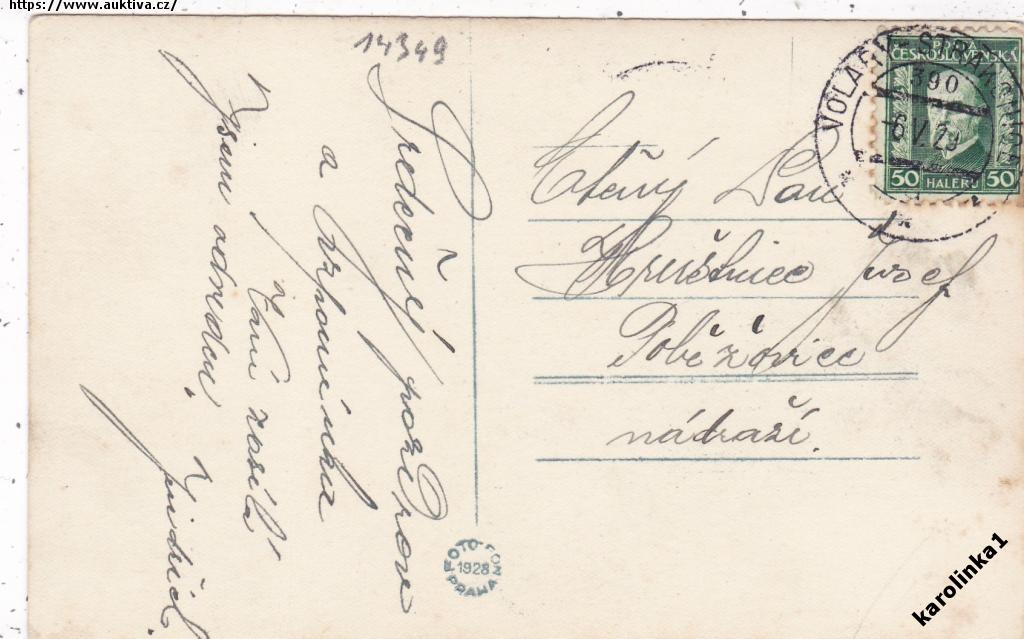 https://www.auktiva.cz/
14349
Srdečný pozdrav
a vzpomínku
Vám zasílá
Jsem odveden.
Jindřich
Ctěný Pan
Hruštinec Josef
Poběžovice
nádraží.
VOLARY - STRAKONICE
390
6 V. 29
POŠTA
ČESKOSLOVENSKÁ
50 HALÉŘŮ 50
FOTO-FON
1928
PRAHA
karolinka1